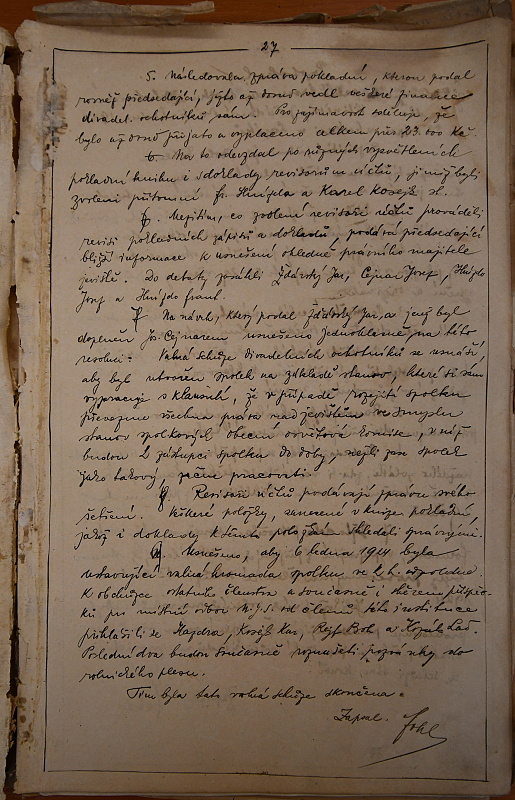 27
5. Následovala zpráva pokladní, kterou podal
rovněž předsedající, jížto až dosud vedl veškeré finance
divadel. ochotníků sám. Pro zajímavost sděluje, že
bylo až dosud přijato a vyplaceno celkem přes 23.000 Kč.
6. Na to odevzdal po různých vysvětleních
pokladní knihu i s doklady revisorům účtů, jimiž byli
zvoleni přítomní fr. Hnízdo a Karel Kosejk st.
6. Mezitím, co zvolení revisoři účtů prováděli
revisi pokladních zápisů a dokladů, podává předsedající
bližší informace k usnešení ohledně právního majitele
jeviště. Do debaty zasáhli Žďárský Jar, Cejnar Josef, Hnízdo
Josef a Hnízdo frant.
7. Na návrh, který podal Žďárský Jar, a jenž byl
doplněn Jos. Cejnarem usnešeno jednohlasně na této
resoluci: Valná schůze divadelních ochotníků se usnáší,
aby byl utvořen spolek na základě stanov, které si sám
vypracuje s klausulí, že v případě rozejití spolku
převezme všechna práva nad jevištěm ve smyslu
stanov spolkových obecní osvětová komise, v níž
budou 2 zástupci spolku do doby, nežli zas spolek
jako takový, začne pracovati.
8. Revisoři účtů podávají zprávu svého
šetření. Veškeré položky, zanesené v knize pokladní,
jakož i doklady k těmto položkám shledali správnými.
9. Usnešeno, aby 6 ledna 1924 byla
ustavující valná hromada spolku ve 2 h. odpoledne.
K obchůzce ostatního členstva a současně i sběrem příspěv-
ků pro místní odbor N.J.S. od členů této instituce
přihlásili se Hajdra, Kosejk Kar, Rejf Boh a Kozák Lad.
Poslední dva budou současně roznášeti pozvánky do
rolnického plesu.
Tím byla tato valná schůze skončena.
Zapsal.